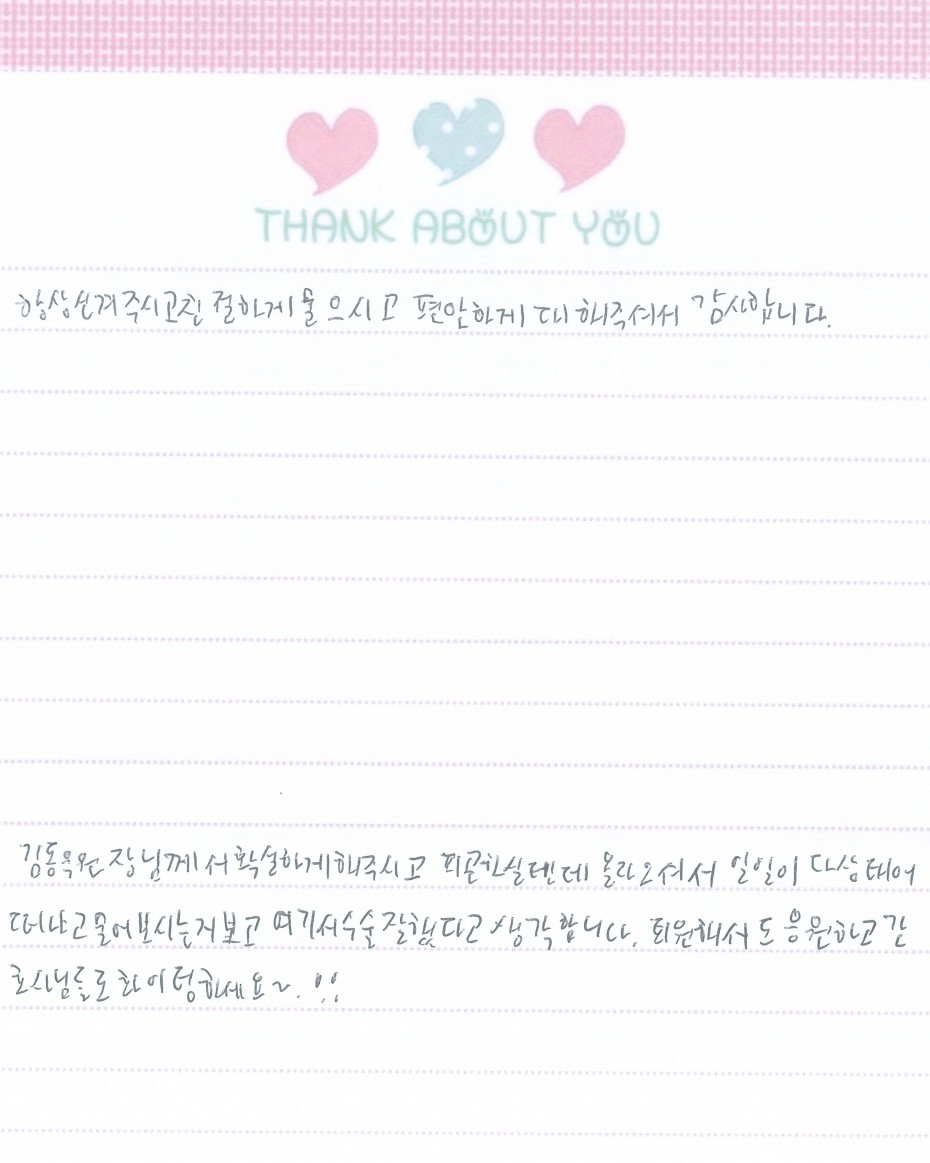 THANK ABOUT YOU
항상신경주시고친절하게물으시고 편안하게대해주셔서 감사합니다.
김동욱원장님께서확실하게해주시고 피곤하실텐데 올라오셔서 일일이 다상태어
떠냐고물어보시는거보고 여기서수술잘했다고생각합니다. 퇴원해서도응원하고간
호사님들도화이팅하세요~. !!